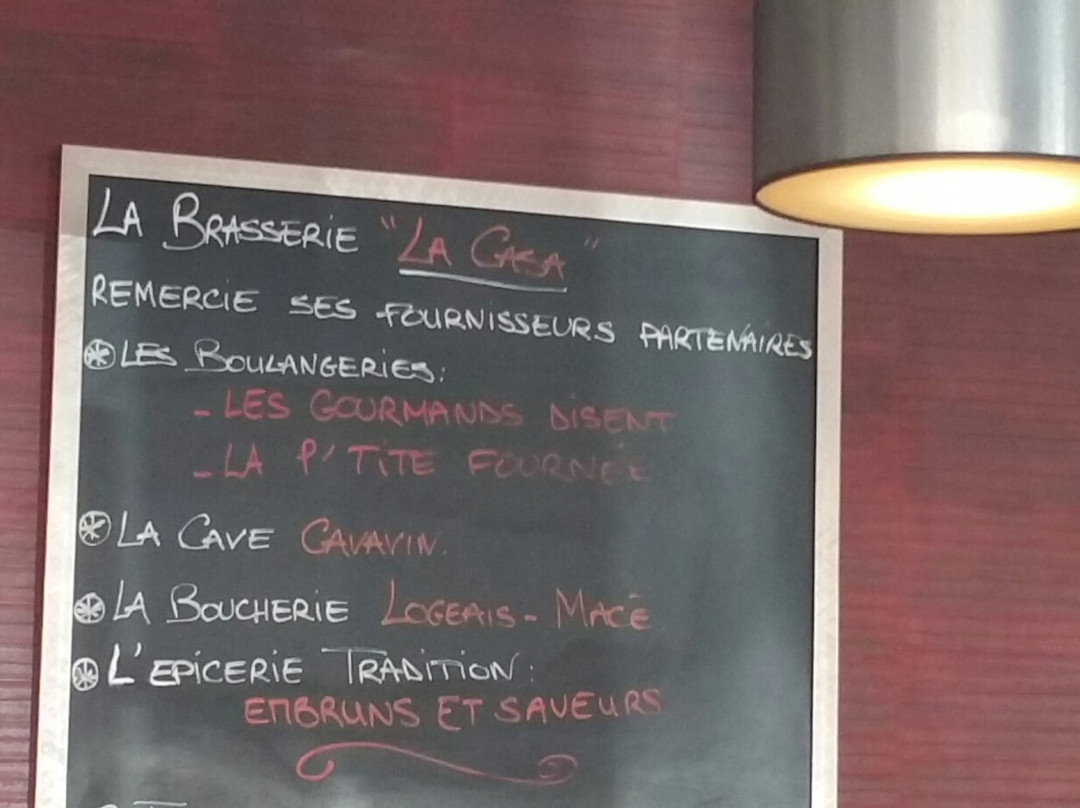 LA BRASSERIE "LA CASA"
REMERCIE SES FOURNISSEURS PARTENAIRES
LES BOULANGERIES:
- LES GOURMANDS DISENT
- LA P'TITE FOURNÉE
LA CAVE CAVAVIN.
LA BOUCHERIE LOGEAIS - MACÉ
L'EPICERIE TRADITION:
EMBRUNS ET SAVEURS